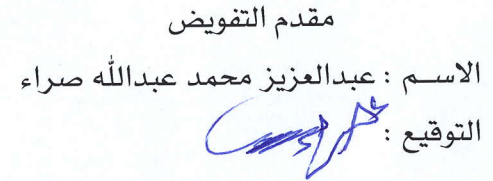 مقدم التفويض
الاســم : عبدالعزيز محمد عبدالله صراء
التوقيع :